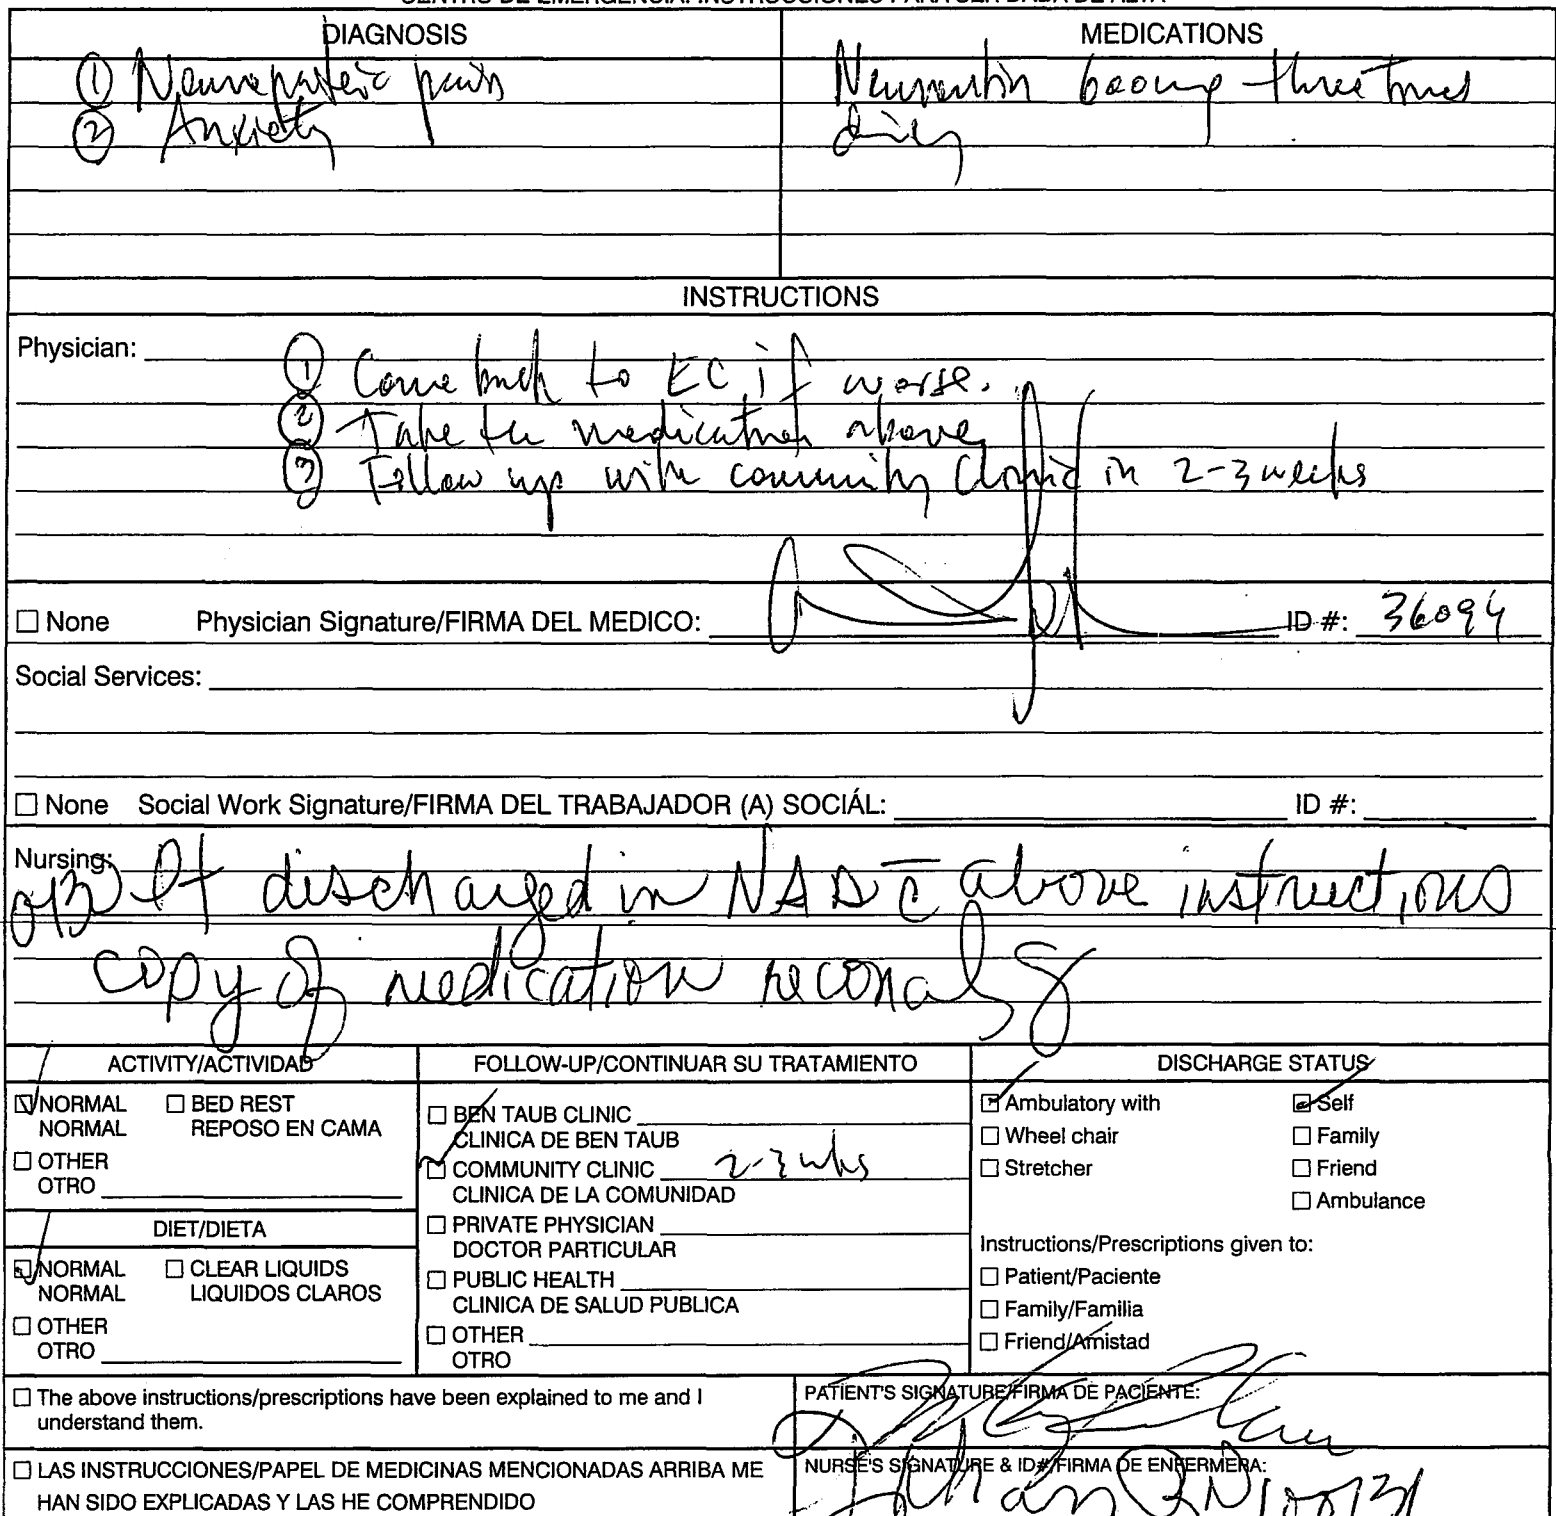 DIAGNOSIS
① Neuropathic pain
② Anxiety
MEDICATIONS
Neurontin 600mg three times
daily
INSTRUCTIONS
Physician:
① Come back to EC if worse.
② Take the medication above
③ Follow up with community Clinic in 2-3 weeks
☐ None Physician Signature/FIRMA DEL MEDICO: ID #: 36094
Social Services:
☐ None Social Work Signature/FIRMA DEL TRABAJADOR (A) SOCIÁL: ID #:
Nursing:
Pt discharged in NAD c̄ above instructions
copy of medication
ACTIVITY/ACTIVIDAD
☑ NORMAL ☐ BED REST
NORMAL REPOSO EN CAMA
☐ OTHER
OTRO
DIET/DIETA
☑ NORMAL ☐ CLEAR LIQUIDS
NORMAL LIQUIDOS CLAROS
☐ OTHER
OTRO
FOLLOW-UP/CONTINUAR SU TRATAMIENTO
☐ BEN TAUB CLINIC
CLINICA DE BEN TAUB
☑ COMMUNITY CLINIC 2-3 wks
CLINICA DE LA COMUNIDAD
☐ PRIVATE PHYSICIAN
DOCTOR PARTICULAR
☐ PUBLIC HEALTH
CLINICA DE SALUD PUBLICA
☐ OTHER
OTRO
DISCHARGE STATUS
☑ Ambulatory with ☑ Self
☐ Wheel chair ☐ Family
☐ Stretcher ☐ Friend
☐ Ambulance
Instructions/Prescriptions given to:
☐ Patient/Paciente
☐ Family/Familia
☐ Friend/Amistad
☐ The above instructions/prescriptions have been explained to me and I
understand them.
PATIENT'S SIGNATURE/FIRMA DE PACIENTE:
☐ LAS INSTRUCCIONES/PAPEL DE MEDICINAS MENCIONADAS ARRIBA ME
HAN SIDO EXPLICADAS Y LAS HE COMPRENDIDO
NURSE'S SIGNATURE & ID#/FIRMA DE ENFERMERA:
RN